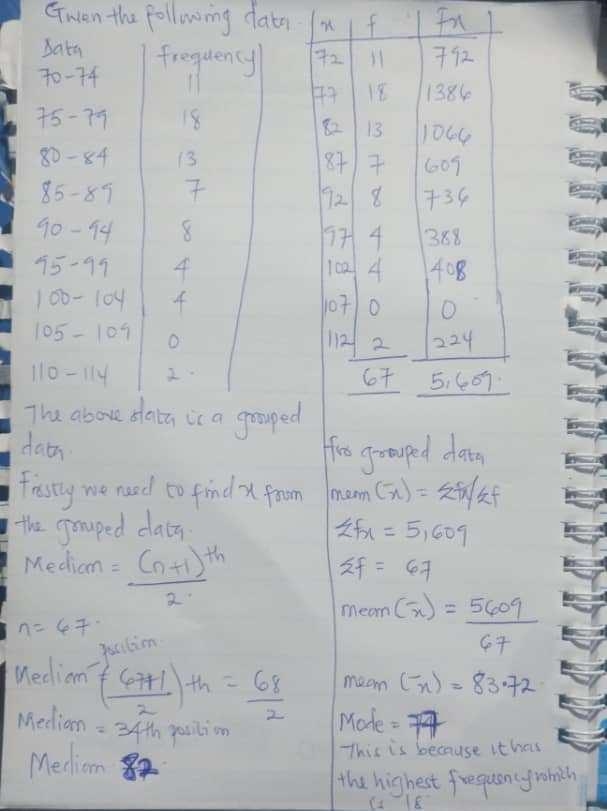 Given the following data.
Data frequency
70-74 11
75-79 18
80-84 13
85-89 7
90-94 8
95-99 4
100-104 4
105-109 0
110-114 2.
The above data is a grouped
data.
Firstly we need to find x from
the grouped data.
Median = (n+1)th
2.
n = 67.
position
Median = (67+1)th = 68
2 2
Median = 34th position
Median 82
x f fx
72 11 792
77 18 1386
82 13 1066
87 7 609
92 8 736
97 4 388
102 4 408
107 0 0
112 2 224
67 5,609.
For grouped data
mean (x̄) = Σfx/Σf
Σfx = 5,609
Σf = 67
mean (x̄) = 5609
67
mean (x̄) = 83.72
Mode = 77
This is because it has
the highest frequency which
is 18